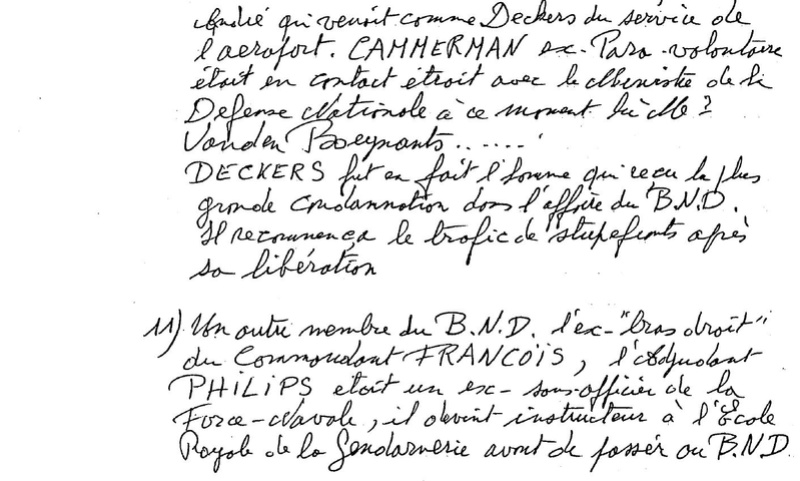 André qui venoit comme Deckers du service de
l'aeroport. CAMMERMAN ex-Para-volontaire
était en contact étroit avec le Ministre de la
Defense Nationale à ce moment là Mr?
Vanden Boeynants......
DECKERS fut en fait l'homme qui reçu la plus
grande condamnation dans l'affaire du B.N.D.
Il recommença le trafic de stupefiants après
sa libération
11) Un autre membre du B.N.D. l'ex-"bras droit"
du Commandant FRANCOIS, l'Adjudant
PHILIPS etait un ex-sous-officier de la
Force-Navale, il devint instructeur à l'École
Royale de la Gendarmerie avant de passer au B.N.D.